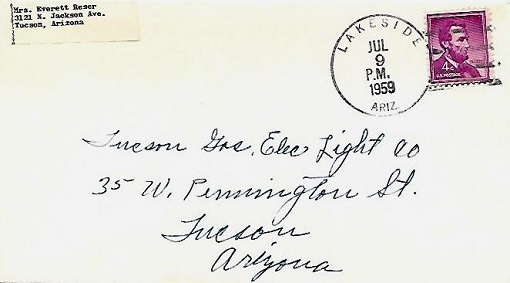 Mrs. Everett Reser
3121 N. Jackson Ave.
Tucson, Arizona
LAKESIDE
JUL
9
P.M.
1959
ARIZ.
4¢
U.S. POSTAGE
Tucson Gas, Elec Light Co
35 W. Pennington St.
Tucson
Arizona